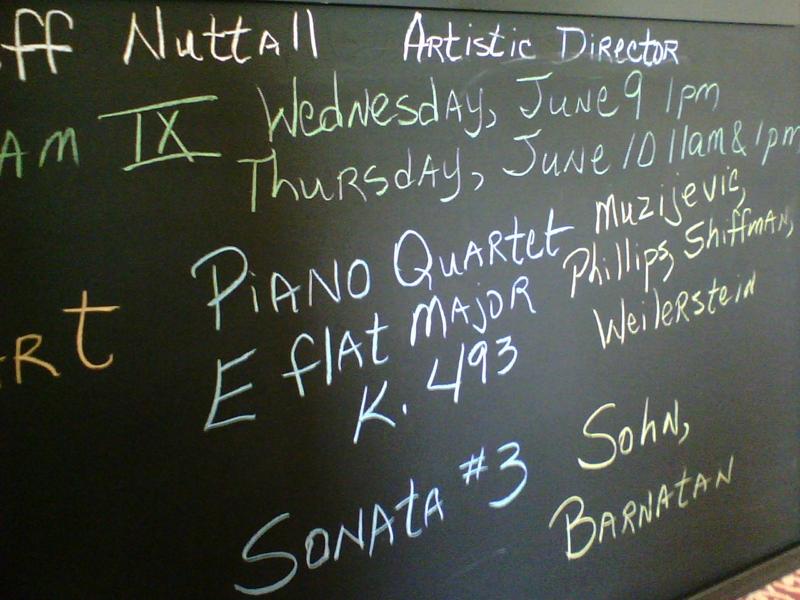 ff Nuttall Artistic Director
AM IX Wednesday, June 9 1pm
Thursday, June 10 11am & 1pm
Piano Quartet Muzijevic,
E flat Major Phillips, Shiffman,
K. 493 Weilerstein
ART
Sonata #3 Sohn,
Barnatan